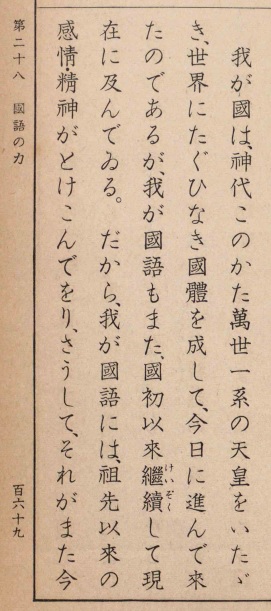 我が國は、神代このかた萬世一系の天皇をいたゞ
き、世界にたぐひなき國體を成して、今日に進んで來
たのであるが、我が國語もまた、國初以來繼續して現
けいぞく
在に及んでゐる。だから、我が國語には、祖先以來の
感情・精神がとけこんでをり、さうして、それがまた今
第二十八 國語の力
百六十九